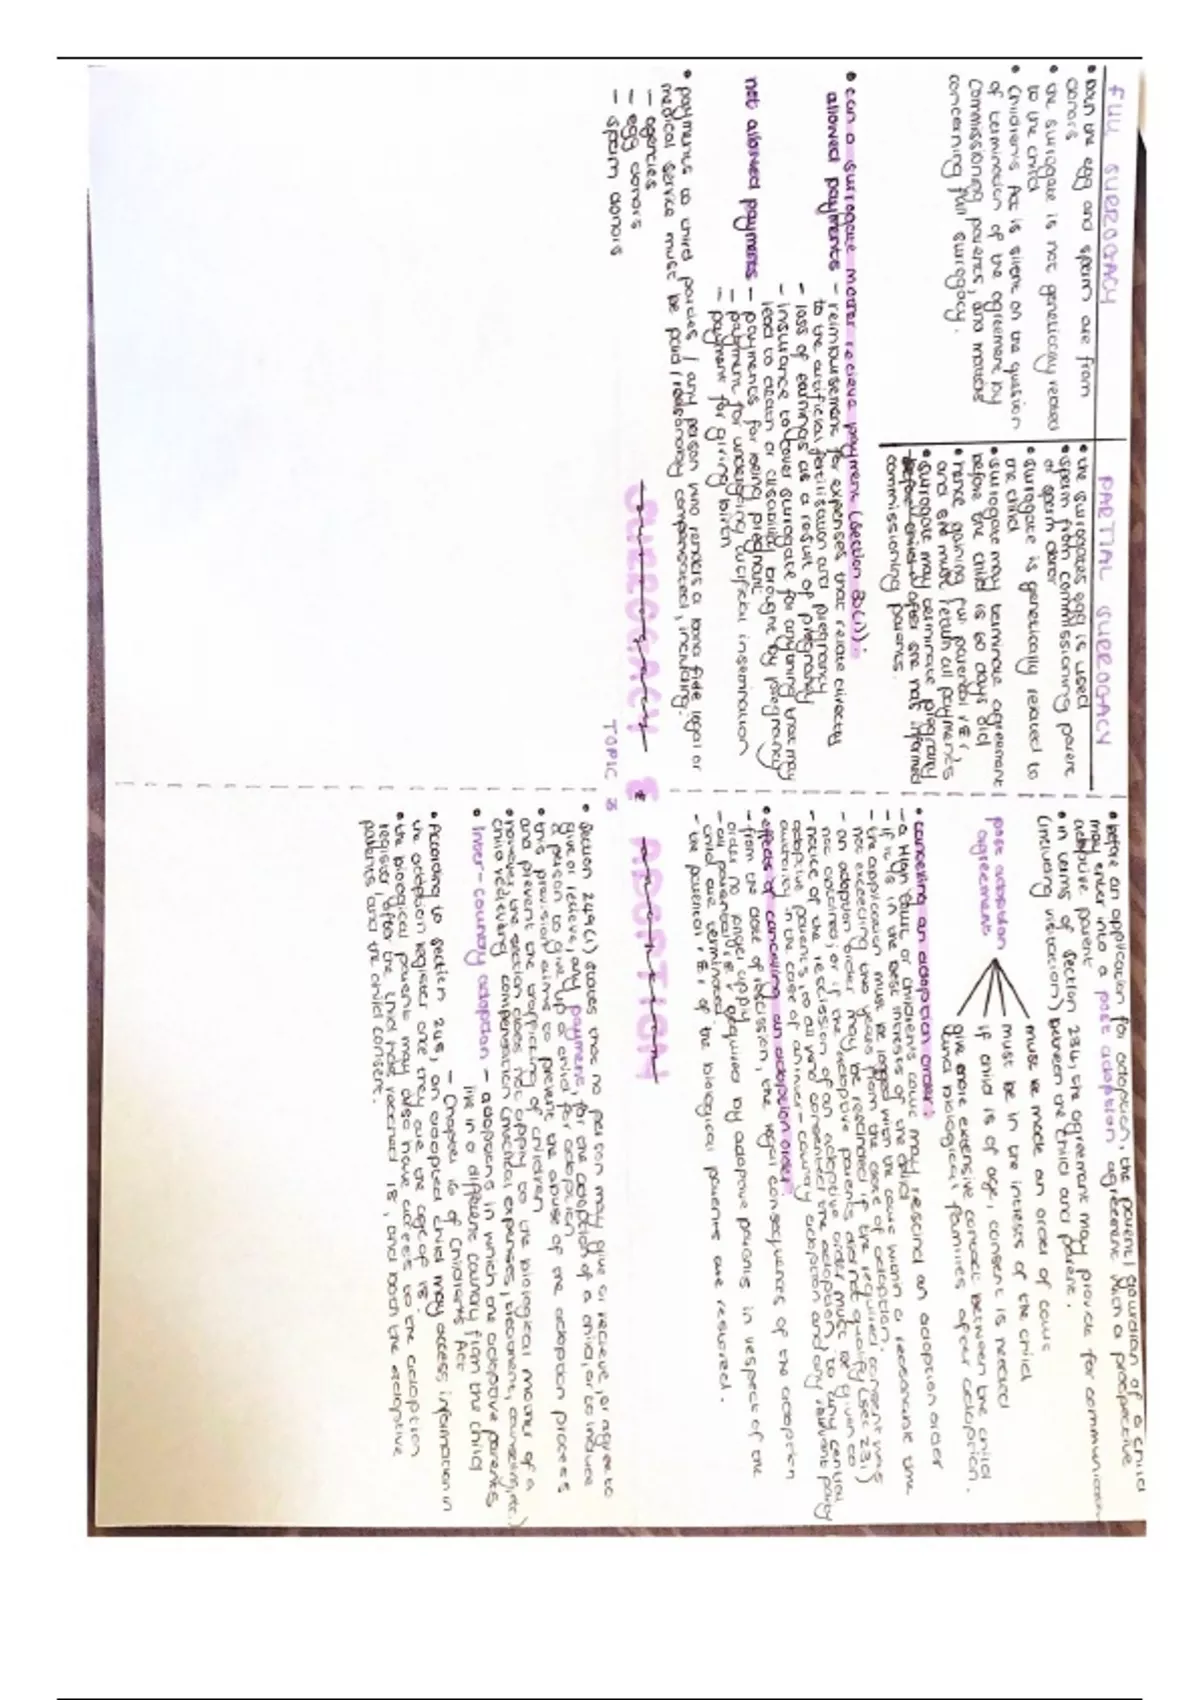 FULL SURROGACY
• both the egg and sperm are from
donors
• the surrogate is not genetically related
to the child
• Children's Act is silent on the question
of termination of the agreement by
commissioning parents, and matters
concerning full surrogacy.
PARTIAL SURROGACY
• the surrogates egg is used
• sperm from commissioning parent
or sperm donor
• surrogate is genetically related to
the child
• surrogate may terminate agreement
before the child is 60 days old
• hence gaining full parental r & r,
and she must return all payments
• surrogate may terminate pregnany
after she has informed
commissioning parents.
• can a surrogate mother recieve payment (section 301(1)):
allowed payments - reimbursement for expenses that relate directly
to the artificial fertilisation and pregnancy
- loss of earnings as a result of pregnancy
- insurance to cover surrogate for anything that may
lead to death or disability brought by pregnancy
not allowed payments - payments for being pregnant
- payment for undergoing artificial insemination
- payment for giving birth
• payments to third parties / any person who renders a bona fide legal or
medical service must be paid / reasonably compensated, including:
- agencies
- egg donors
- sperm donors
SURROGACY & ADOPTION
surrogacy & adoption
TOPIC 3
• before an application for adoption, the parent / gaurdian of a child
may enter into a post adoption agreement with a prospective
adoptive parent
• in terms of section 234, the agreement may provide for communication
(including visitation) between the child and parent.
post adoption
agreement
must be made an order of court
must be in the intrests of the child
if child is of age, consent is needed
give more extensive contact between the child
and biological families after adoption.
• cancelling an adoption order:
- a High Court or children's court may rescind an adoption order
- if it is in the best intrests of the child
- the application must be lodged with the court within a reasonable time
not exceeding two years from the date of adoption.
- an adoption order may be rescinded if the required consent was
not obtained, or if the adoptive parents did not qualify (sec 231)
- notice of the rescission of an adoptive order must be given to
adoptive parents, to all who consented the adoption, to any central
authority in the case of an inter-country adoption and any relevant party
• effects of cancelling an adoption order:
- from the date of rescission, the legal consequences of the adoption
order no longer apply
- all parental r & r acquired by adoptive parents in respect of the
child are terminated
- the parental r & r of the biological parents are restored.
• section 249(1) states that no person may give or recieve, or agree to
give or recieve, any payment, for the adoption of a child, or to induce
a person to give up a child for adoption
• this provision aims to prevent the abuse of the adoption process
and prevent the trafficing of children
• however the section does not apply to the biological mother of a
child recieving compensation (medical expenses, treatment, counselling, etc)
• inter-country adoption - adoptions in which the adoptive parents
live in a different country from the child
- Chapter 16 of Children's Act
• According to section 248, an adopted child may access information in
the adoption register once they are the age of 18.
• the biological parents may also have access to the adoption
register after the child has reached 18, and both the adoptive
parents and the child consent.